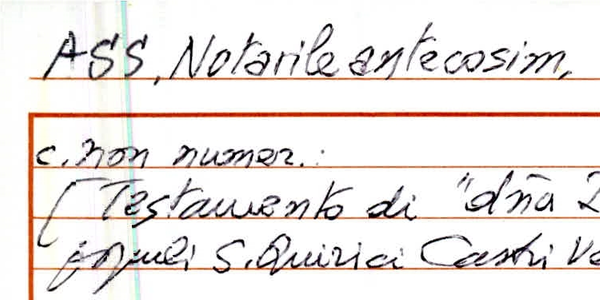 ASS, Notarile antecosim,
c. non numer.:
[Testamento di "dña
populi S. Quirici Castri